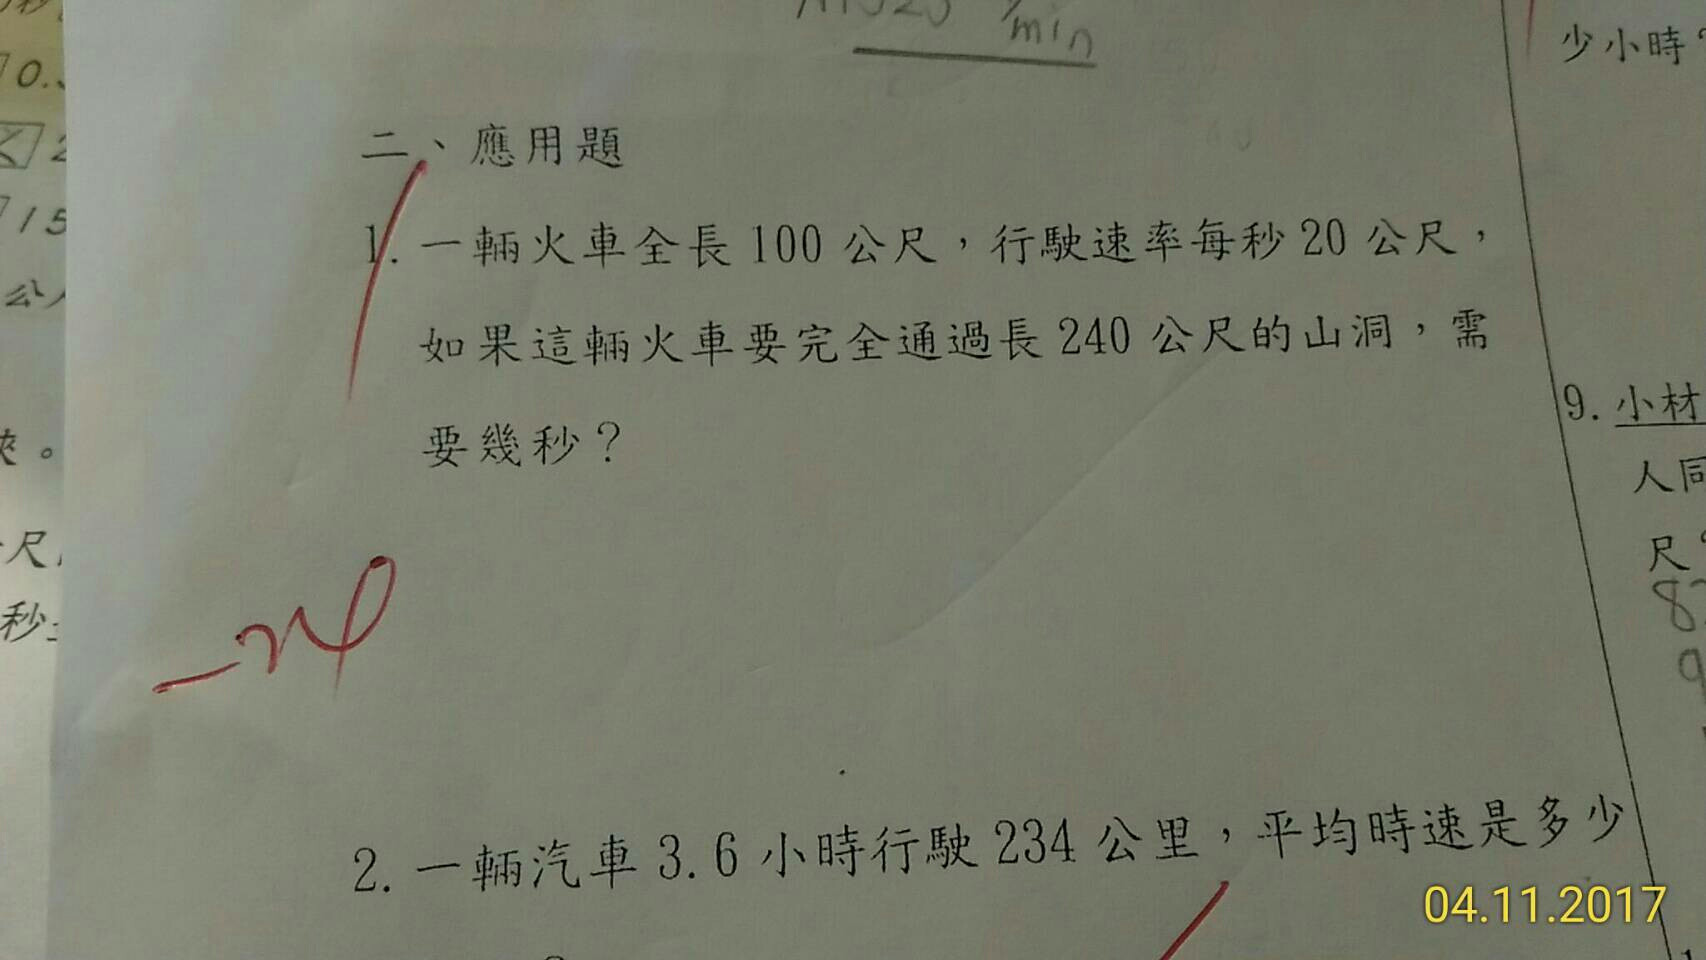 min
二、應用題
1. 一輛火車全長100公尺，行駛速率每秒20公尺，
如果這輛火車要完全通過長240公尺的山洞，需
要幾秒？
2. 一輛汽車3.6小時行駛234公里，平均時速是多少
少小時
9. 小材
人同
尺
04.11.2017